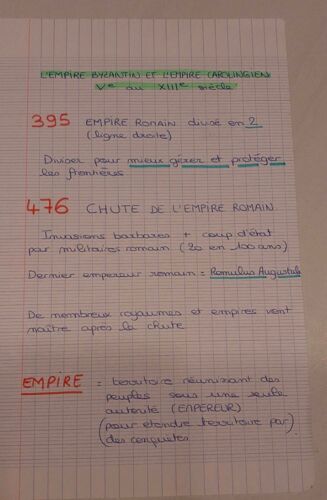 L'EMPIRE BYZANTIN ET L'EMPIRE CAROLINGIEN
Ve au XIIIe siècle
395 EMPIRE ROMAIN divisé en 2
(ligne droite)
Diviser pour mieux gérer et protéger
les frontières
476 CHUTE DE L'EMPIRE ROMAIN
Invasions barbares + coup d'état
par militaires romain (20 en 100 ans)
Dernier empereur romain = Romulus Augustule
De nombreux royaumes et empires vont
naître après la chute
EMPIRE = territoire réunissant des
peuples sous une seule
autorité (EMPEREUR)
(pour étendre territoire par)
(des conquetes